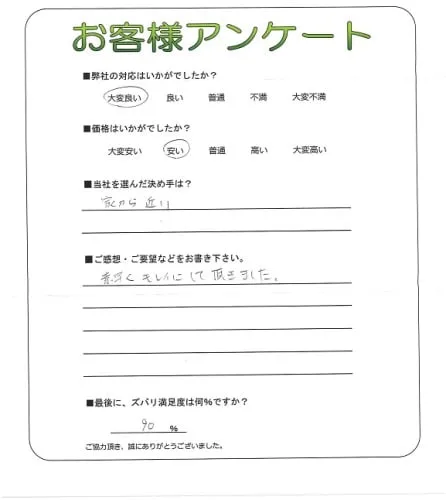 お客様アンケート
■弊社の対応はいかがでしたか？
大変良い 良い 普通 不満 大変不満
■価格はいかがでしたか？
大変安い 安い 普通 高い 大変高い
■当社を選んだ決め手は？
家から 近い
■ご感想・ご要望などをお書き下さい。
キレイにして頂きました。
■最後に、ズバリ満足度は何％ですか？
90 ％
ご協力頂き、誠にありがとうございました。